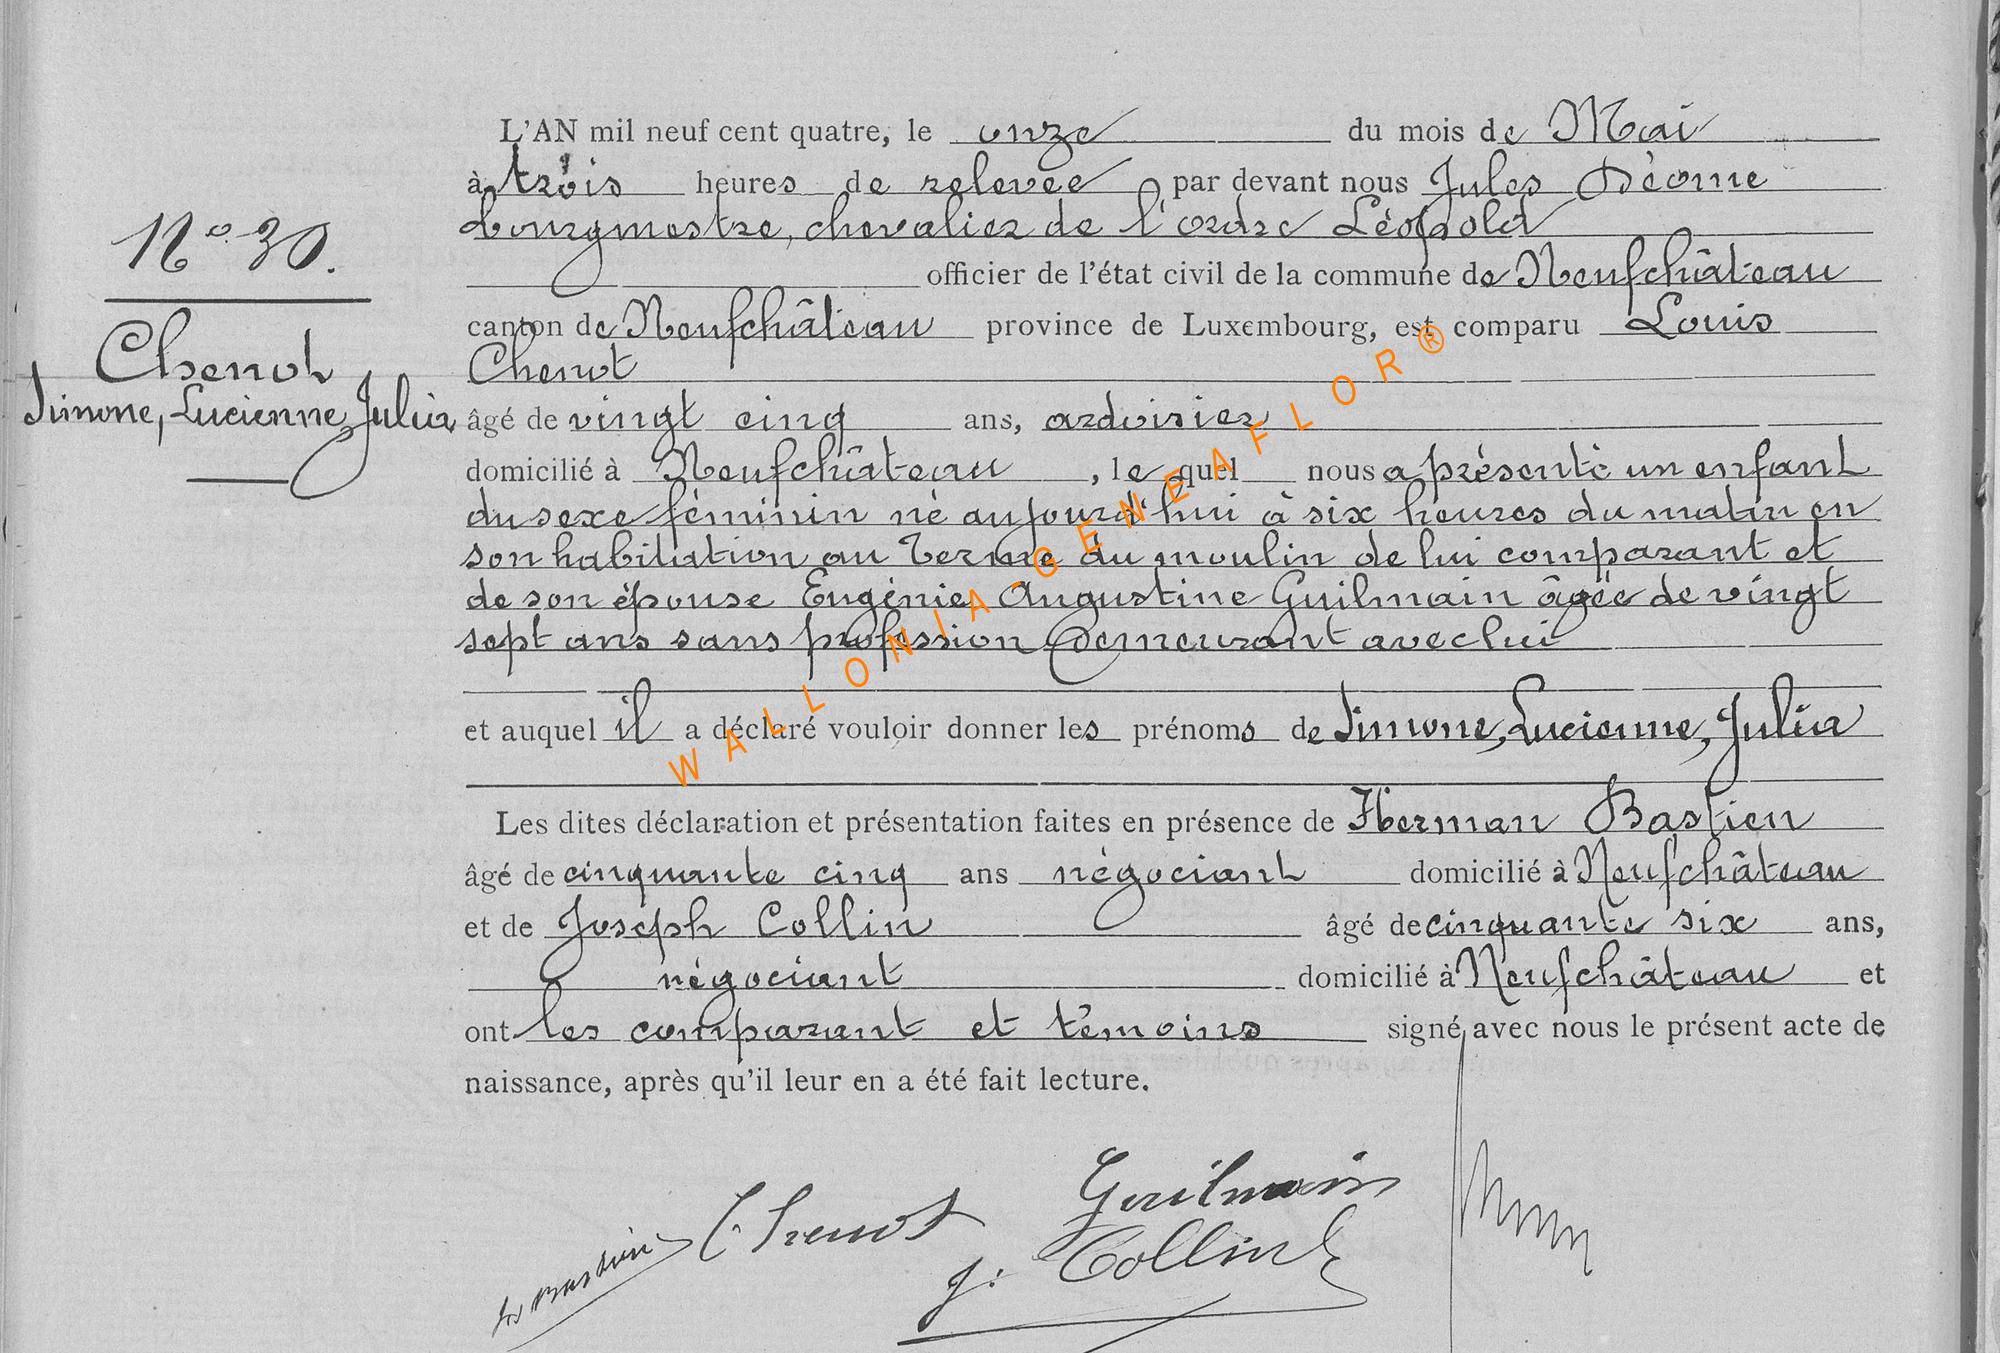 L'AN mil neuf cent quatre, le onze du mois de Mai
à trois heures de relevée par devant nous Jules Déome
bourgmestre, chevalier de l'ordre Léopold
officier de l'état civil de la commune de Neufchâteau
canton de Neufchâteau province de Luxembourg, est comparu Louis
Chenot
âgé de vingt cinq ans, ardoisier
domicilié à Neufchâteau, lequel nous a présenté un enfant
du sexe féminin né aujourd'hui à six heures du matin en
son habitation au Terme du moulin de lui comparant et
de son épouse Eugénie Augustine Guilmain âgée de vingt
sept ans sans profession demeurant avec lui
et auquel il a déclaré vouloir donner les prénoms de Simone, Lucienne, Julia
Les dites déclaration et présentation faites en présence de Herman Bastien
âgé de cinquante cinq ans négociant domicilié à Neufchâteau
et de Joseph Collin âgé de cinquante six ans,
négociant domicilié à Neufchâteau et
ont les comparant et témoins signé avec nous le présent acte de
naissance, après qu'il leur en a été fait lecture.
N° 30.
Chenot
Simone, Lucienne, Julia
Bastien
Chenot
Guilmain
J. Collin
WALLONIA-GENEAFLOR®